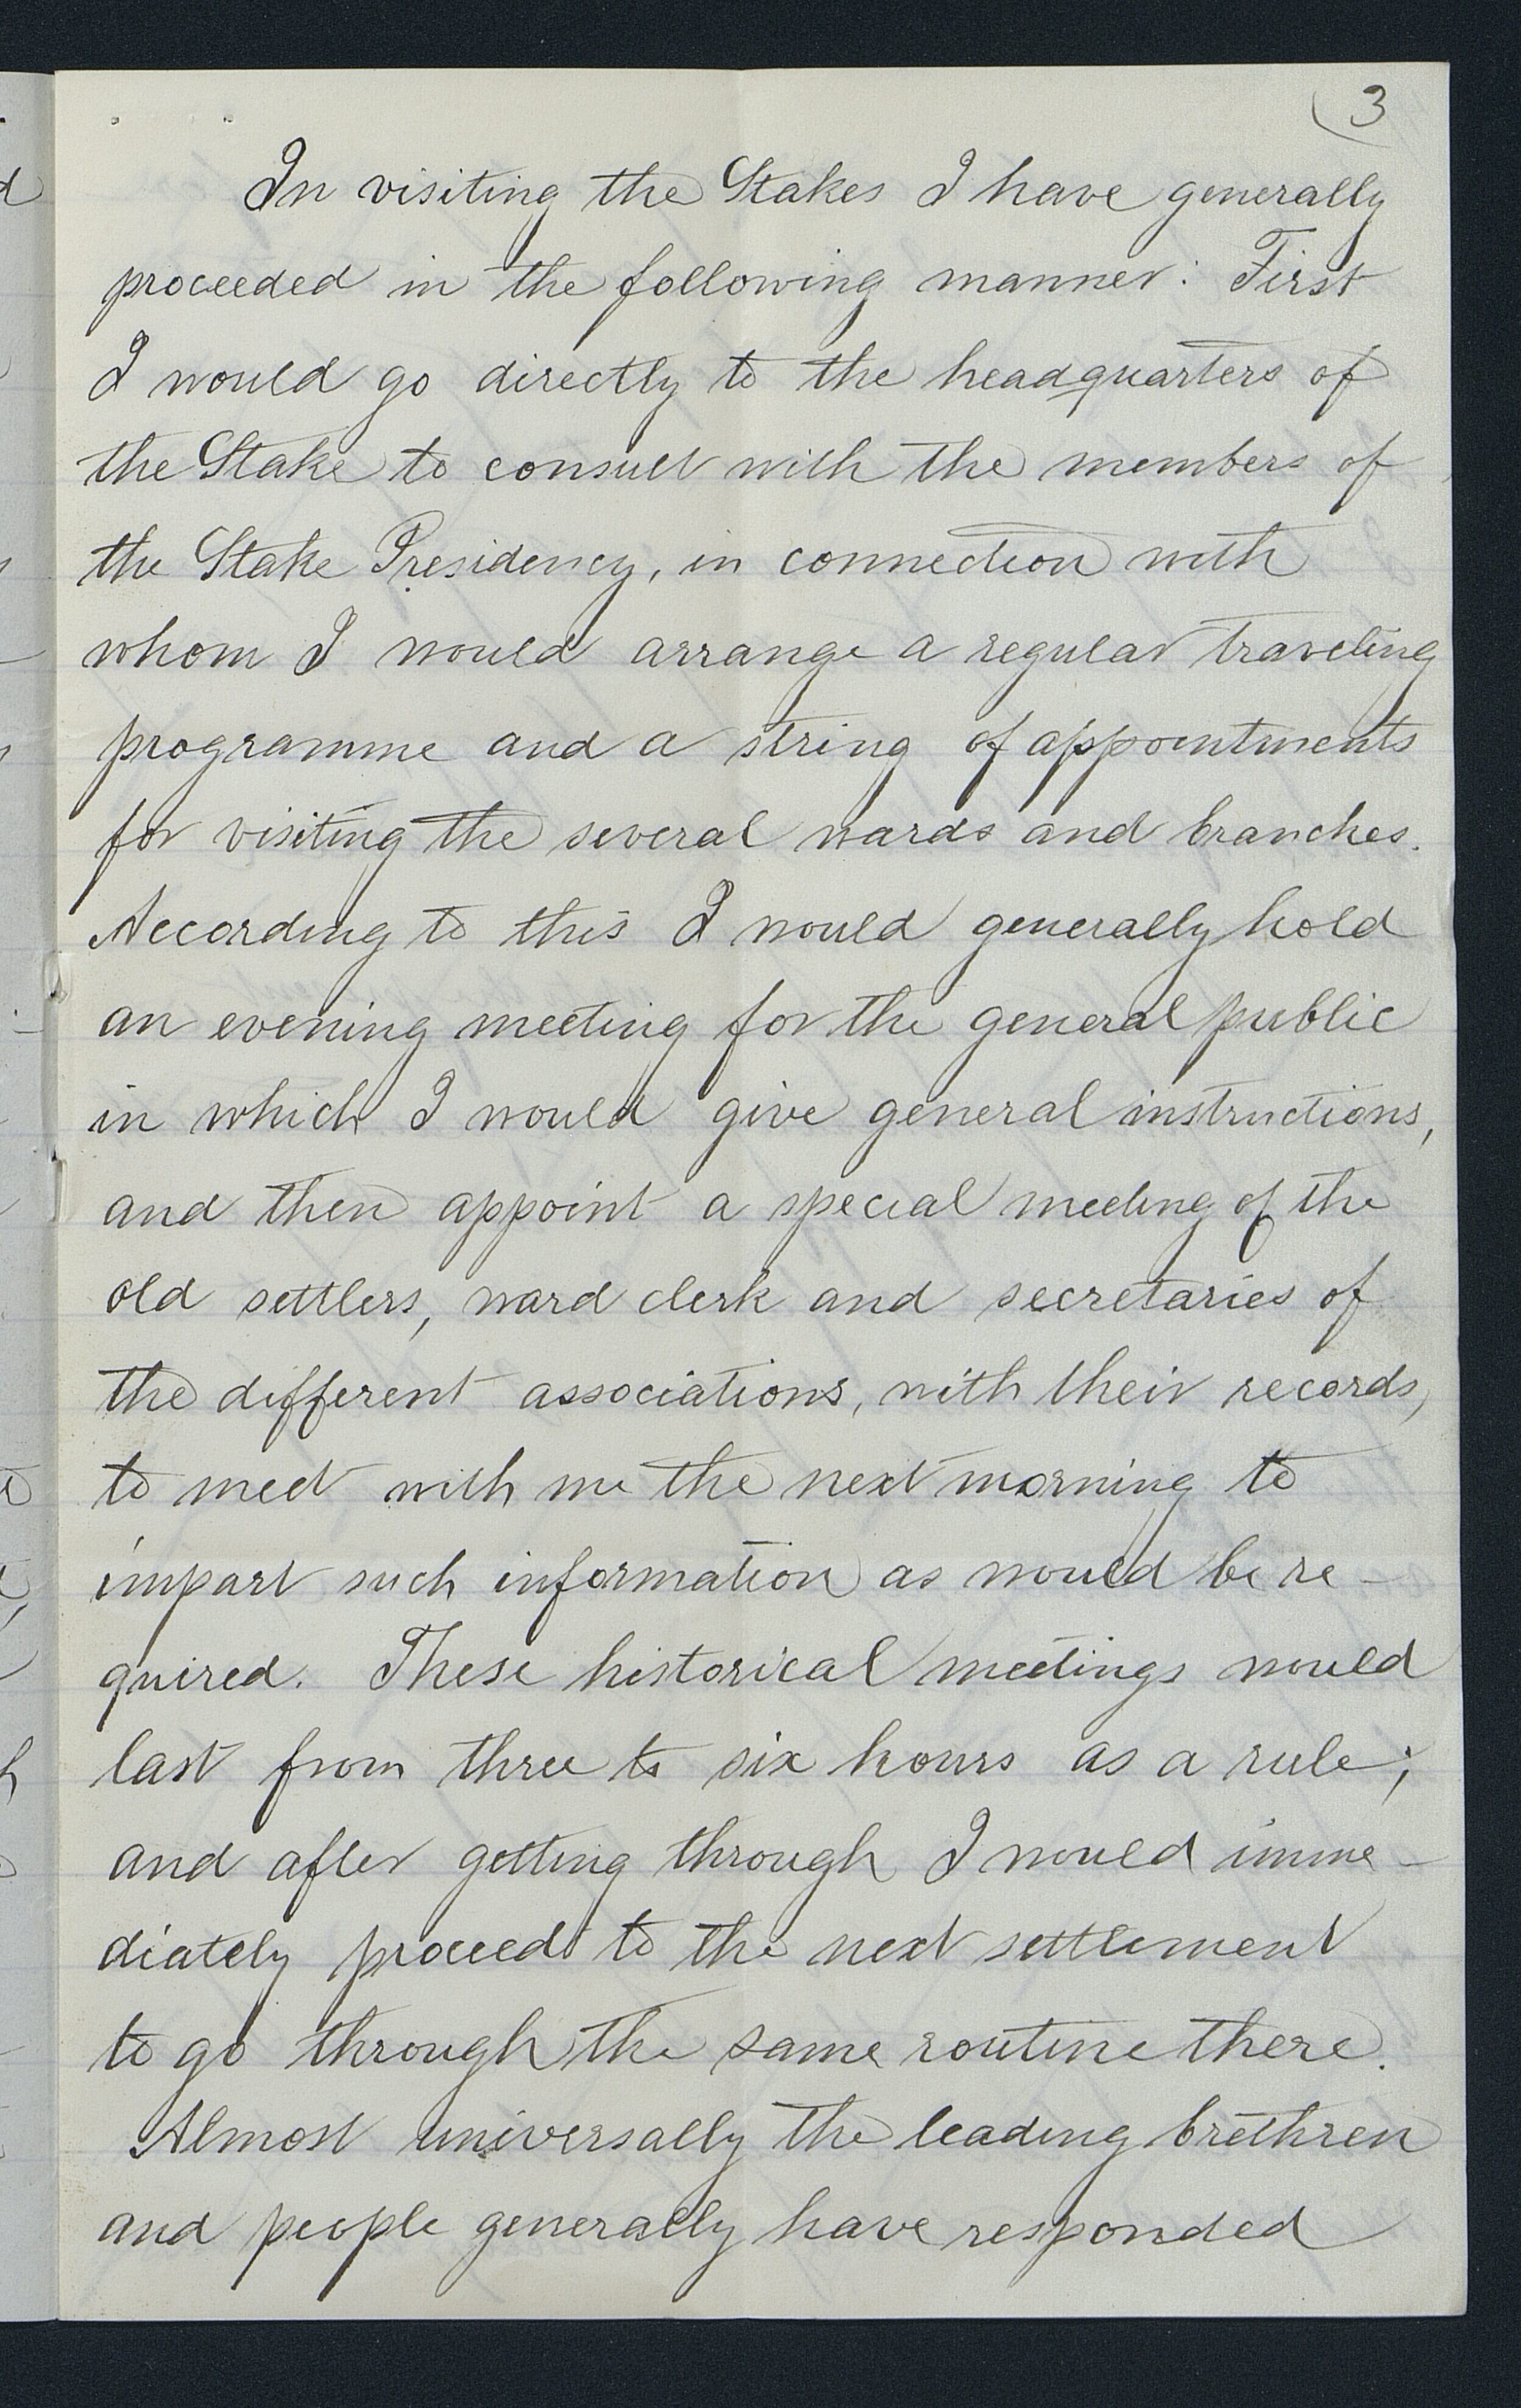 (3
In visiting the Stakes I have generally
proceeded in the following manner: First
I would go directly to the headquarters of
the Stake to consult with the members of
the Stake Presidency, in connection with
whom I would arrange a regular traveling
programme and a string of appointments
for visiting the several wards and branches.
According to this I would generally hold
an evening meeting for the general public
in which I would give general instructions,
and then appoint a special meeting of the
old settlers, ward clerk and secretaries of
the different associations, with their records,
to meet with me the next morning to
impart such information as would be re-
quired. These historical meetings would
last from three to six hours as a rule;
and after getting through I would imme-
diately proceed to the next settlement
to go through the same routine there.
Almost universally the leading brethren
and people generally have responded